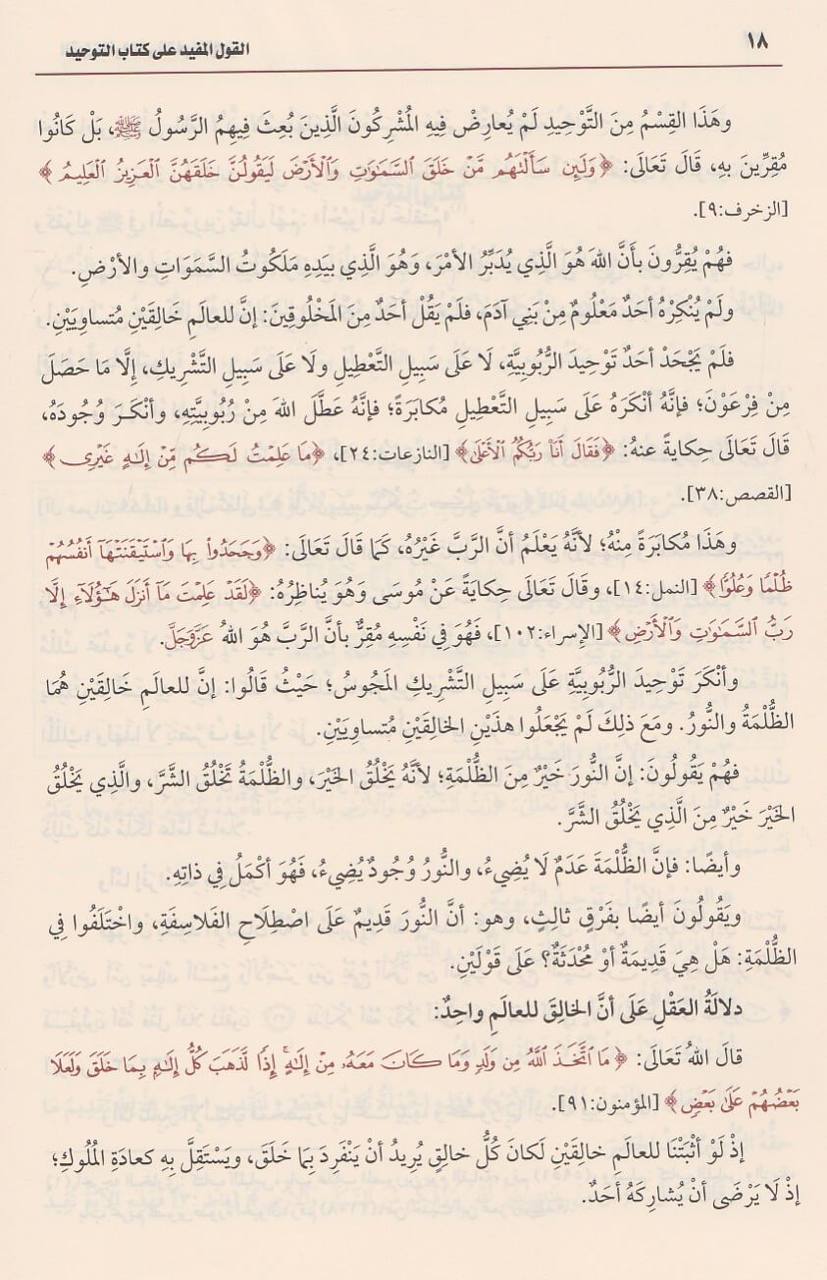 ١٨
القول المفيد على كتاب التوحيد
وهَذَا القِسْمُ مِنَ التَّوْحِيدِ لَمْ يُعارِضْ فِيهِ المُشْرِكُونَ الَّذِينَ بُعِثَ فِيهِمُ الرَّسُولُ ﷺ، بَلْ كَانُوا
مُقِرِّينَ بِهِ، قَالَ تَعَالَى: ﴿وَلَئِن سَأَلْتَهُم مَّنْ خَلَقَ السَّمَٰوَٰتِ وَالْأَرْضَ لَيَقُولُنَّ خَلَقَهُنَّ الْعَزِيزُ الْعَلِيمُ﴾
[الزخرف:٩].
فهُمْ يُقِرُّونَ بأَنَّ اللهَ هُوَ الَّذِي يُدَبِّرُ الأمْرَ، وَهُوَ الَّذِي بيَدِهِ مَلَكُوتُ السَّمَوَاتِ والأرْضِ.
ولَمْ يُنْكِرْهُ أحَدٌ مَعْلُومٌ مِنْ بَنِي آدَمَ، فلَمْ يَقُلْ أحَدٌ مِنَ المَخْلُوقِينَ: إنَّ للعالَمِ خَالِقَيْنِ مُتساوِيَيْنِ.
فلَمْ يَجْحَدْ أحَدٌ تَوْحِيدَ الرُّبُوبِيَّةِ، لَا عَلَى سَبِيلِ التَّعْطِيلِ ولَا عَلَى سَبِيلِ التَّشْرِيكِ، إلَّا مَا حَصَلَ
مِنْ فِرْعَوْنَ؛ فإنَّهُ أنْكَرَهُ عَلَى سَبِيلِ التَّعْطِيلِ مُكابَرَةً؛ فإنَّهُ عَطَّلَ اللهَ مِنْ رُبُوبيَّتِهِ، وأنْكَرَ وُجُودَهُ،
قَالَ تَعَالَى حِكايةً عنهُ: ﴿فَقَالَ أَنَا۠ رَبُّكُمُ الْأَعْلَىٰ﴾ [النازعات:٢٤]، ﴿مَا عَلِمْتُ لَكُم مِّنْ إِلَٰهٍ غَيْرِى﴾
[القصص:٣٨].
وهَذَا مُكابَرَةً مِنْهُ؛ لأنَّهُ يَعْلَمُ أنَّ الرَّبَّ غَيْرُهُ، كَمَا قَالَ تَعَالَى: ﴿وَجَحَدُوا۟ بِهَا وَاسْتَيْقَنَتْهَآ أَنفُسُهُمْ
ظُلْمًا وَعُلُوًّا﴾ [النمل:١٤]، وقَالَ تَعَالَى حِكايةً عَنْ مُوسَى وَهُوَ يُناظِرُهُ: ﴿لَقَدْ عَلِمْتَ مَآ أَنزَلَ هَٰٓؤُلَآءِ إِلَّا
رَبُّ السَّمَٰوَٰتِ وَالْأَرْضِ﴾ [الإسراء:١٠٢]، فَهُوَ فِي نَفْسِهِ مُقِرٌّ بأنَّ الرَّبَّ هُوَ اللهُ عَزَّوَجَلَّ.
وأنْكَرَ تَوْحِيدَ الرُّبُوبِيَّةِ عَلَى سَبِيلِ التَّشْرِيكِ المَجُوسُ؛ حَيْثُ قَالُوا: إنَّ للعالَمِ خَالِقَيْنِ هُمَا
الظُّلْمَةُ والنُّورُ. ومَعَ ذلِكَ لَمْ يَجْعَلُوا هذَيْنِ الخالِقَيْنِ مُتساوِيَيْنِ.
فهُمْ يَقُولُونَ: إنَّ النُّورَ خَيْرٌ مِنَ الظُّلْمَةِ؛ لأنَّهُ يَخْلُقُ الخَيْرَ، والظُّلْمَةُ تَخْلُقُ الشَّرَّ، والَّذِي يَخْلُقُ
الخَيْرَ خَيْرٌ مِنَ الَّذِي يَخْلُقُ الشَّرَّ.
وأيضًا: فإنَّ الظُّلْمَةَ عَدَمٌ لَا يُضِيءُ، والنُّورُ وُجُودٌ يُضِيءُ، فَهُوَ أكْمَلُ فِي ذاتِهِ.
ويَقُولُونَ أيضًا بفَرْقٍ ثالِثٍ، وهو: أنَّ النُّورَ قَدِيمٌ عَلَى اصْطِلَاحِ الفَلاسِفَةِ، واخْتَلَفُوا فِي
الظُّلْمَةِ: هَلْ هِيَ قَدِيمَةٌ أوْ مُحْدَثَةٌ؟ عَلَى قَوْلَيْنِ.
دلالَةُ العَقْلِ عَلَى أنَّ الخالِقَ للعالَمِ واحِدٌ:
قَالَ اللهُ تَعَالَى: ﴿مَا اتَّخَذَ اللَّهُ مِن وَلَدٍ وَمَا كَانَ مَعَهُۥ مِنْ إِلَٰهٍ ۚ إِذًا لَّذَهَبَ كُلُّ إِلَٰهٍۭ بِمَا خَلَقَ وَلَعَلَا
بَعْضُهُمْ عَلَىٰ بَعْضٍ﴾ [المؤمنون:٩١].
إذْ لَوْ أثْبَتْنَا للعالَمِ خالِقَيْنِ لَكانَ كُلُّ خالِقٍ يُرِيدُ أنْ يَنْفَرِدَ بِمَا خَلَقَ، ويَسْتَقِلَّ بِهِ كعادَةِ المُلُوكِ؛
إذْ لَا يَرْضَى أنْ يُشارِكَهُ أحَدٌ.